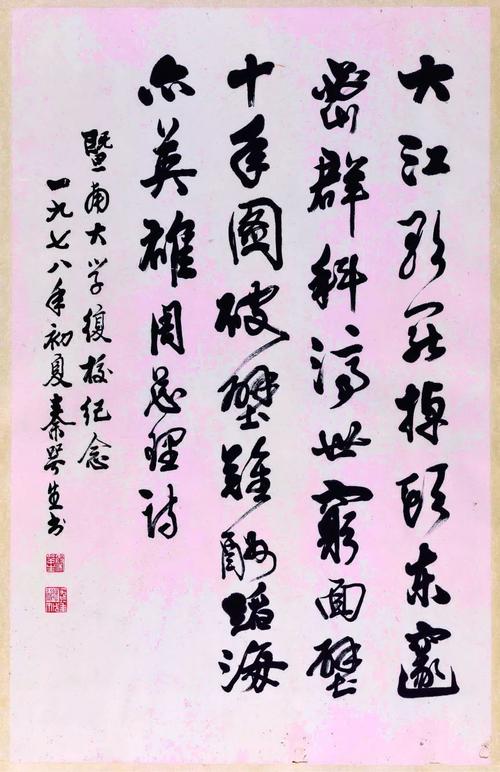 大江歌罢掉頭东邃
密群科济世窮面壁
十年图破壁難酬蹈海
亦英雄周总理诗
暨南大学復校纪念
一九七八年初夏秦咢生书